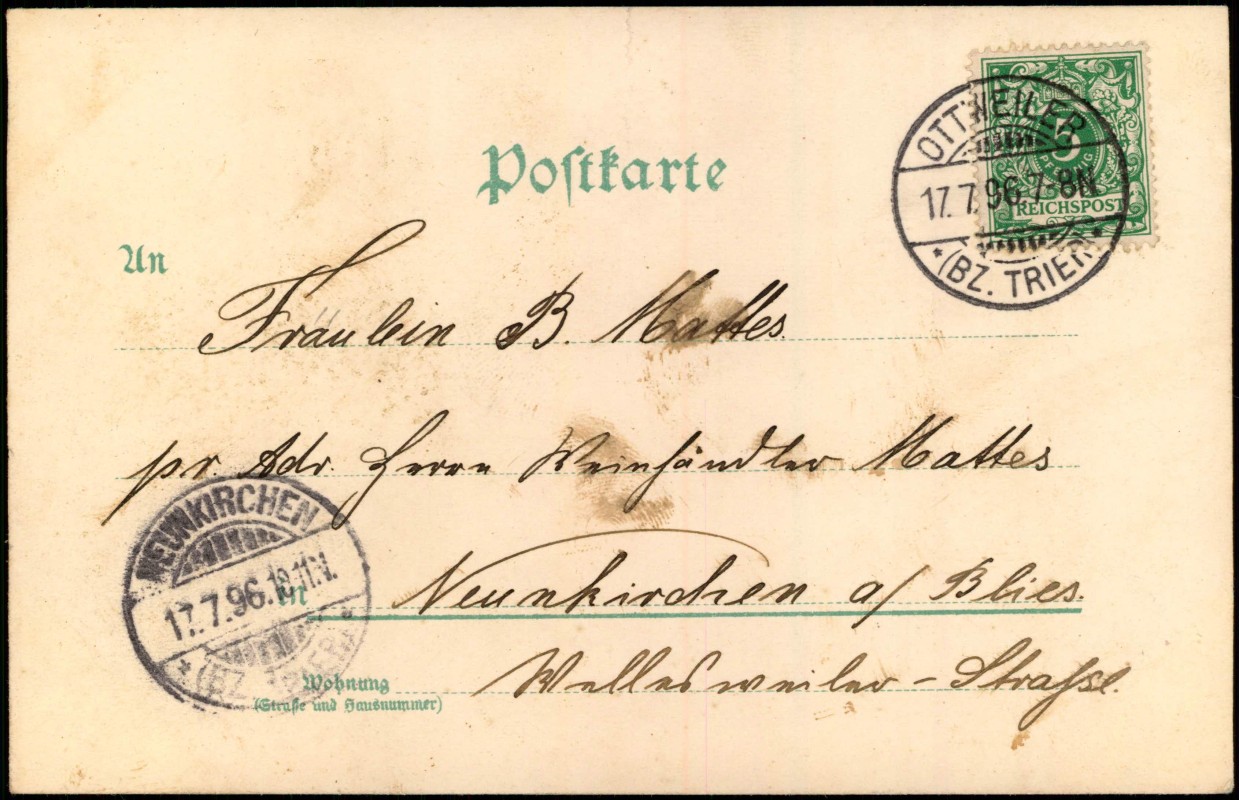 Postkarte
5
PFENNIG
REICHSPOST
OTTWEILER
17.7.96.7-8N.
*(BZ. TRIER)*
An
Fräulein B. Mattes.
pr. Adr. Herrn Weinhändler Mattes
NEUNKIRCHEN
17.7.96.10-11N.
*(BZ. TRIER)*
in Neunkirchen a/ Blies.
Wohnung
(Straße und Hausnummer)
Wellesweiler-Straße.